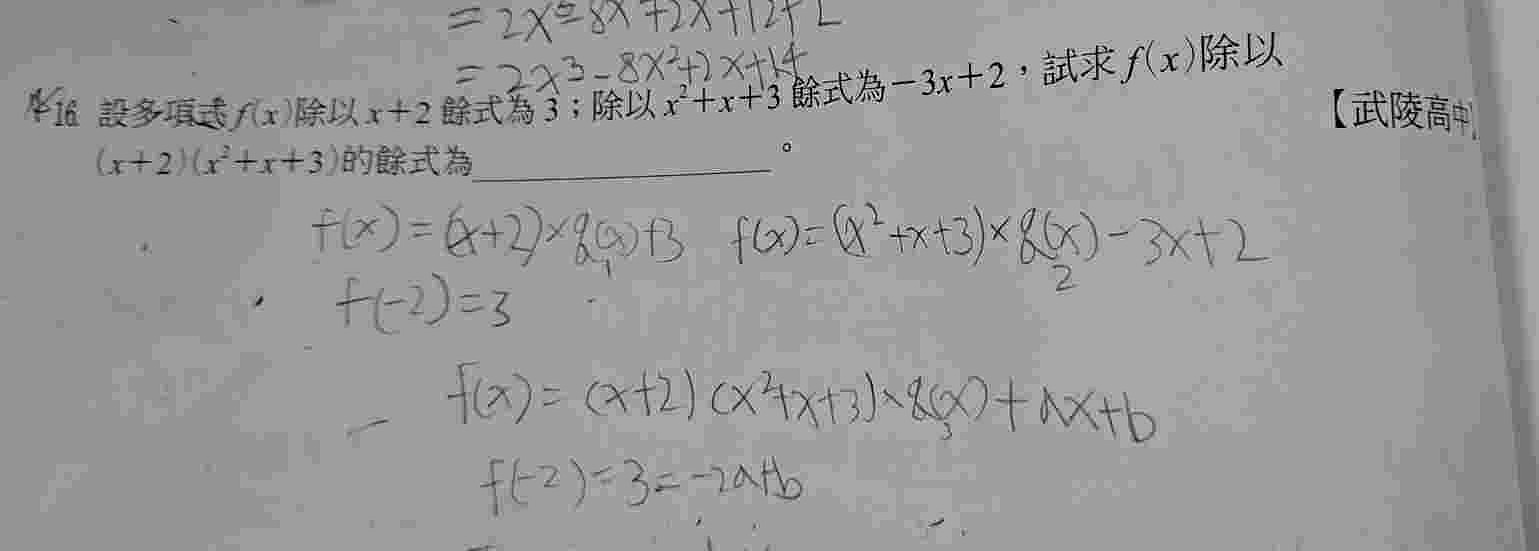 = 2x³-8x²+2x+14
16. 設多項式 f(x)除以 x+2 餘式為 3；除以 x²+x+3 餘式為 -3x+2，試求 f(x)除以
【武陵高中】
(x+2)(x²+x+3)的餘式為____________。
f(x)=(x+2)×q₁(x)+3 f(x)=(x²+x+3)×q₂(x)-3x+2
f(-2)=3
f(x)=(x+2)(x²+x+3)×q₃(x)+ax+b
f(-2)=3=-2a+b